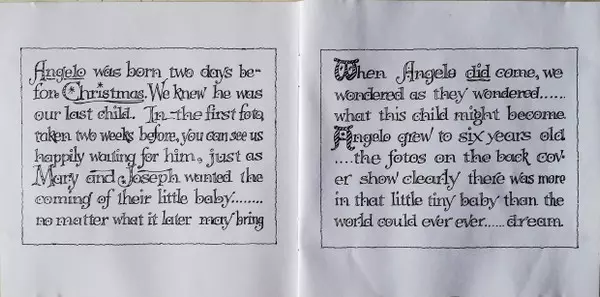 Angelo was born two days be-
fore Christmas. We knew he was
our last child. In the first foto,
taken two weeks before, you can see us
happily waiting for him, just as
Mary and Joseph wanted the
coming of their little baby........
no matter what it later may bring
When Angelo did come, we
wondered as they wondered......
what this child might become.
Angelo grew to six years old
....the fotos on the back cov-
er show clearly there was more
in that little tiny baby than the
world could ever ever...... dream.